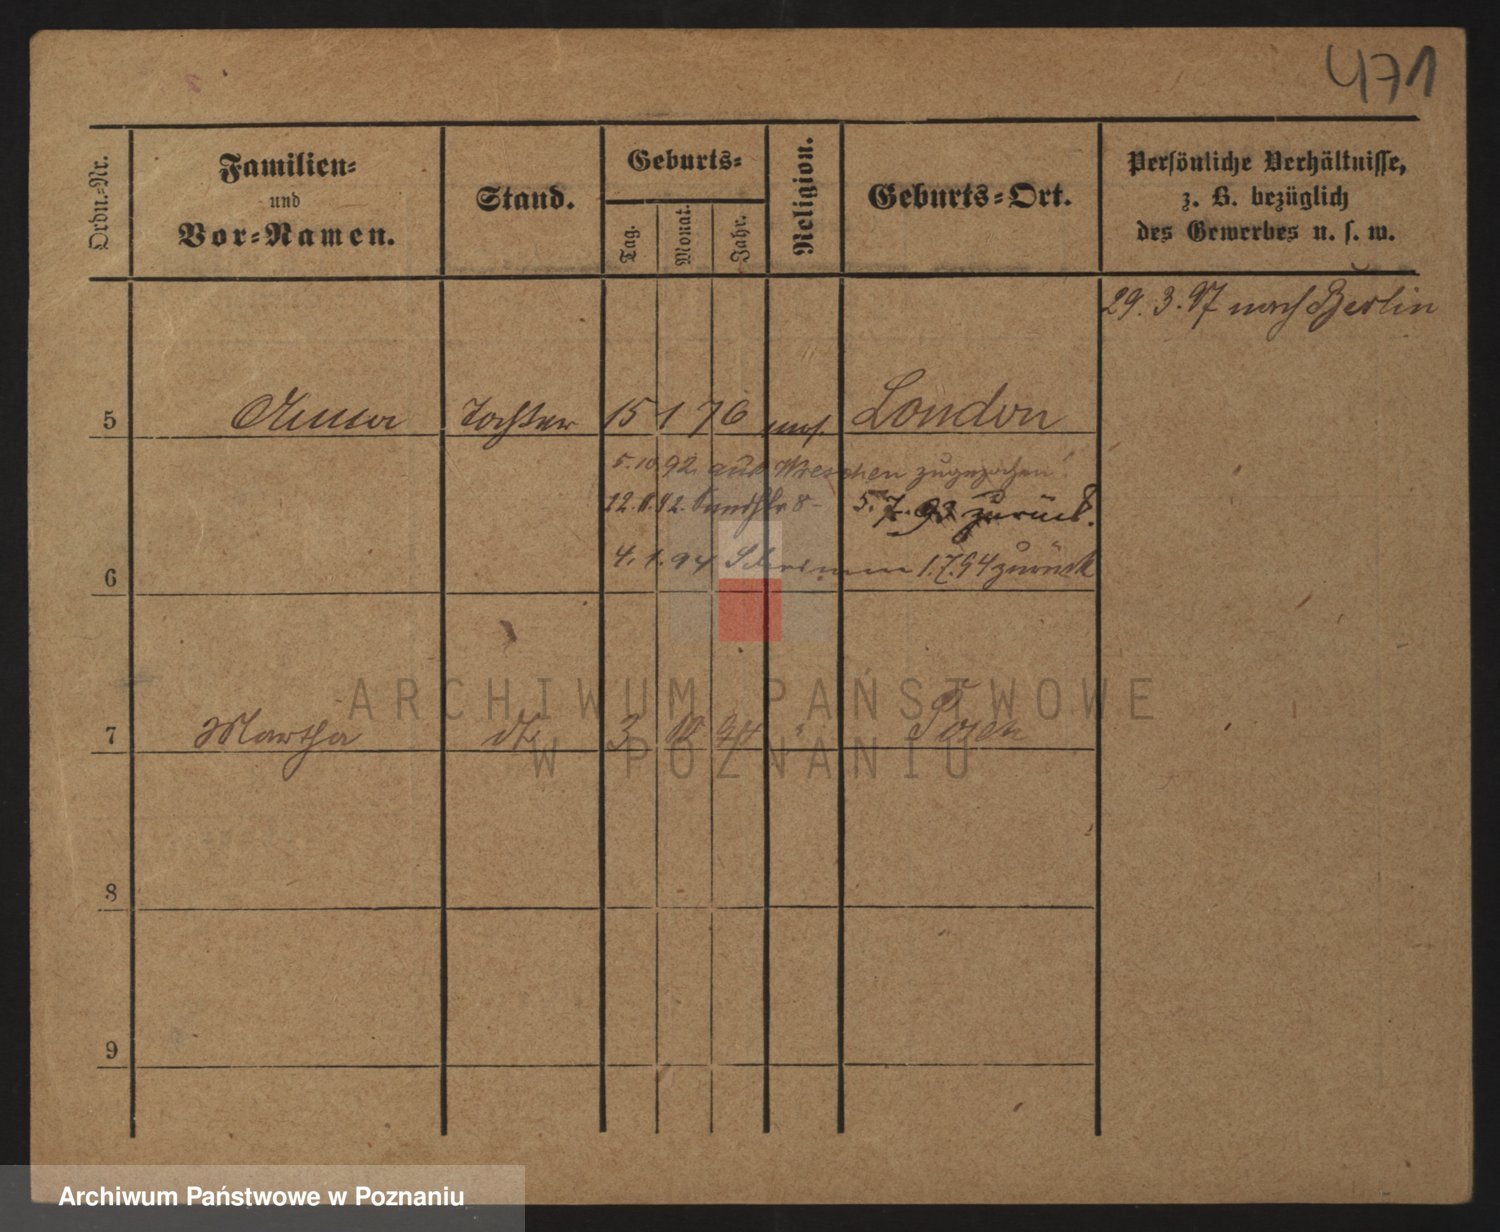 471
Ordn.-Nr.
Familien-
und
Vor-Namen.
Stand.
Geburts-
Tag.
Monat.
Jahr.
Religion.
Geburts-Ort.
Persönliche Verhältnisse,
z. B. bezüglich
des Gewerbes u. s. w.
29. 3. 97 nach Berlin
5 Anna Tochter 15 1 76 mos. London
5.10.92. aus Wreschen zugezogen!
5.7.93 zurück.
6 4.1.94 Schrimm 1.7.94 zurück
7 Martha dto 3 Posen
8
9
ARCHIWUM PAŃSTWOWE
W POZNANIU
Archiwum Państwowe w Poznaniu